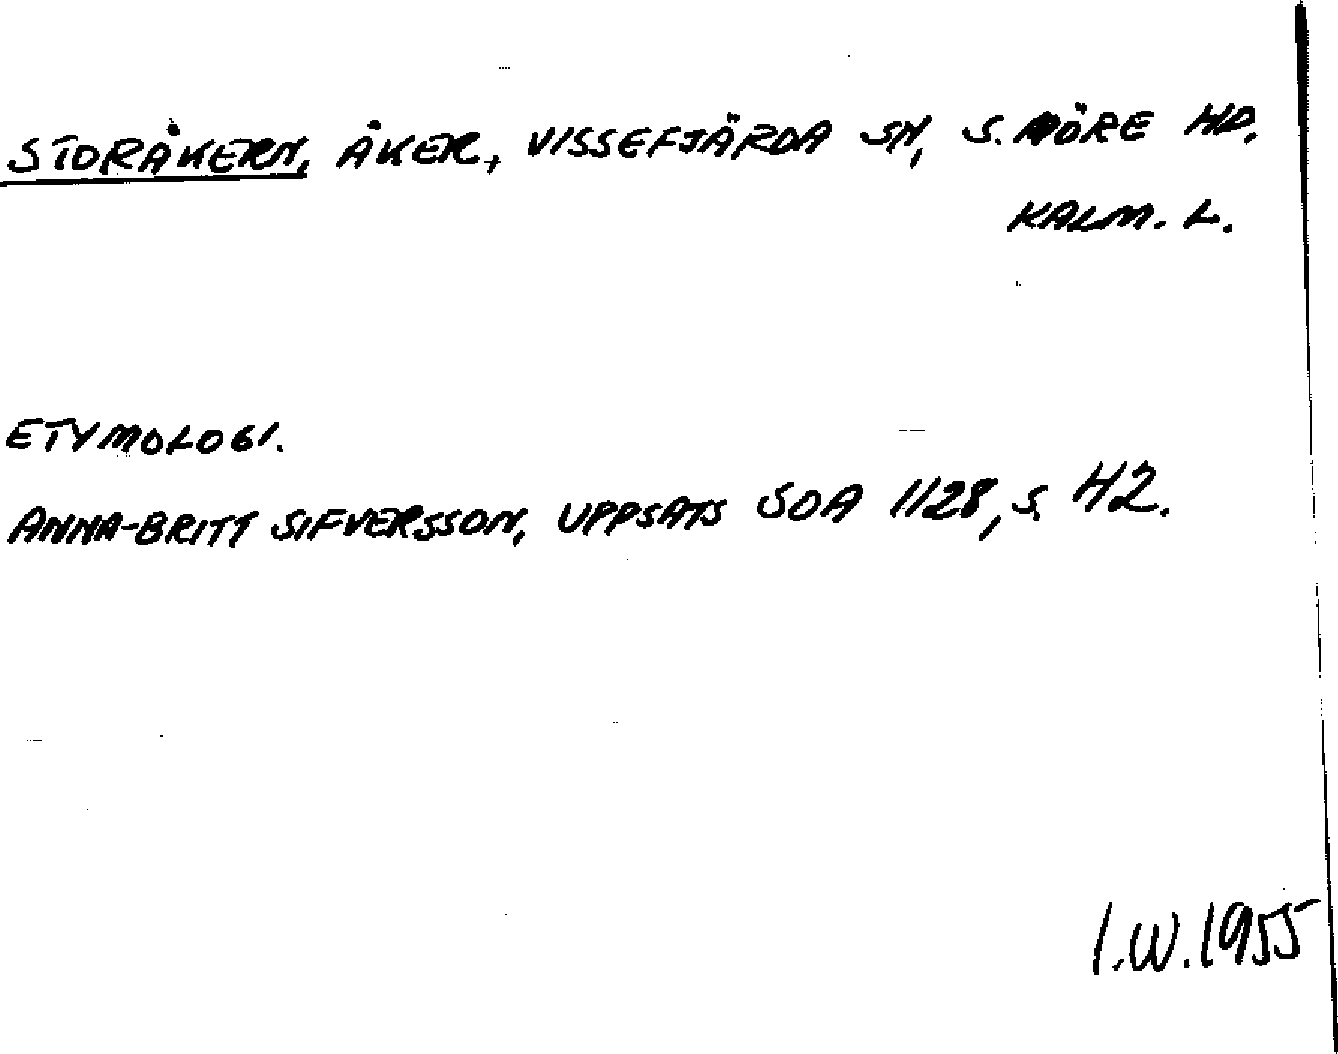 STORÅKERN, ÅKER, VISSEFJÄRDA SN, S. MÖRE HD.
KALM. L.
ETYMOLOGI.
ANNA-BRITT SIFVERSSON, UPPSATS SOA 1128, S. 42.
I.W. 1955